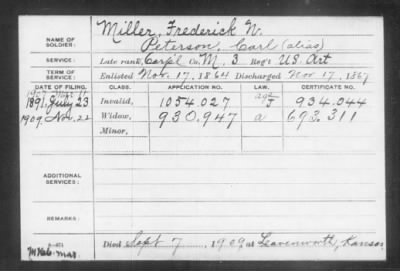 NAME OF SOLDIER: Miller, Frederick N.
Peterson, Carl (alias)
SERVICE: Late rank, Corp'l Co. M, 3 Reg't U.S. Art
TERM OF SERVICE: Enlisted Nov. 17, 1864 Discharged Nov 17, 1867
DATE OF FILING. CLASS. APPLICATION NO. LAW. CERTIFICATE NO.
1891, July 23 Invalid, 1054.027 J 934.044
1909, Nov. 22 Widow, 930.947 a 693.311
Minor,
ADDITIONAL SERVICES:
REMARKS:
Died Sept 7 1909 at Leavenworth, Kansas